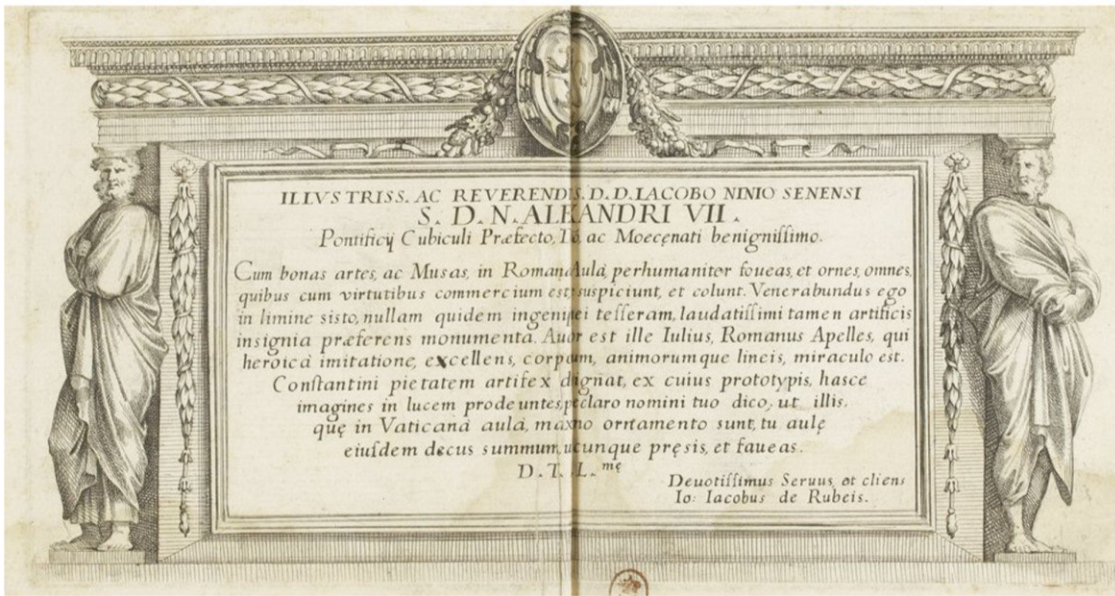 ILLVSTRISS. AC REVERENDIS. D. D. IACOBO NINIO SENENSI
S. D. N. ALEXANDRI VII.
Pontificij Cubiculi Præfecto, ac Moecęnati benignißimo.
Cum bonas artes, ac Musas, in Romana Aulâ, perhumaniter foueas, et ornes, omnes,
quibus cum virtutibus commercium est, suspiciunt, et colunt. Venerabundus ego
in limine sisto, nullam quidem ingenij mei teßeram, laudatißimi tamen artificis
insignia præferens monumenta. est ille Iulius, Romanus Apelles, qui
heroicâ imitatione, excellens, corporum, animorumque lineis, miraculo est.
Constantini pietatem artifex, ex cuius prototypis, hasce
imagines in lucem prodeuntes, nomini tuo dico, ut illis,
quę in Vaticanâ aulâ, ornamento sunt, tu aulę
eiusdem decus summum, pręsis, et faueas.
D. T. L.mę
Deuotißimus Seruus, et cliens
Io: Iacobus de Rubeis.